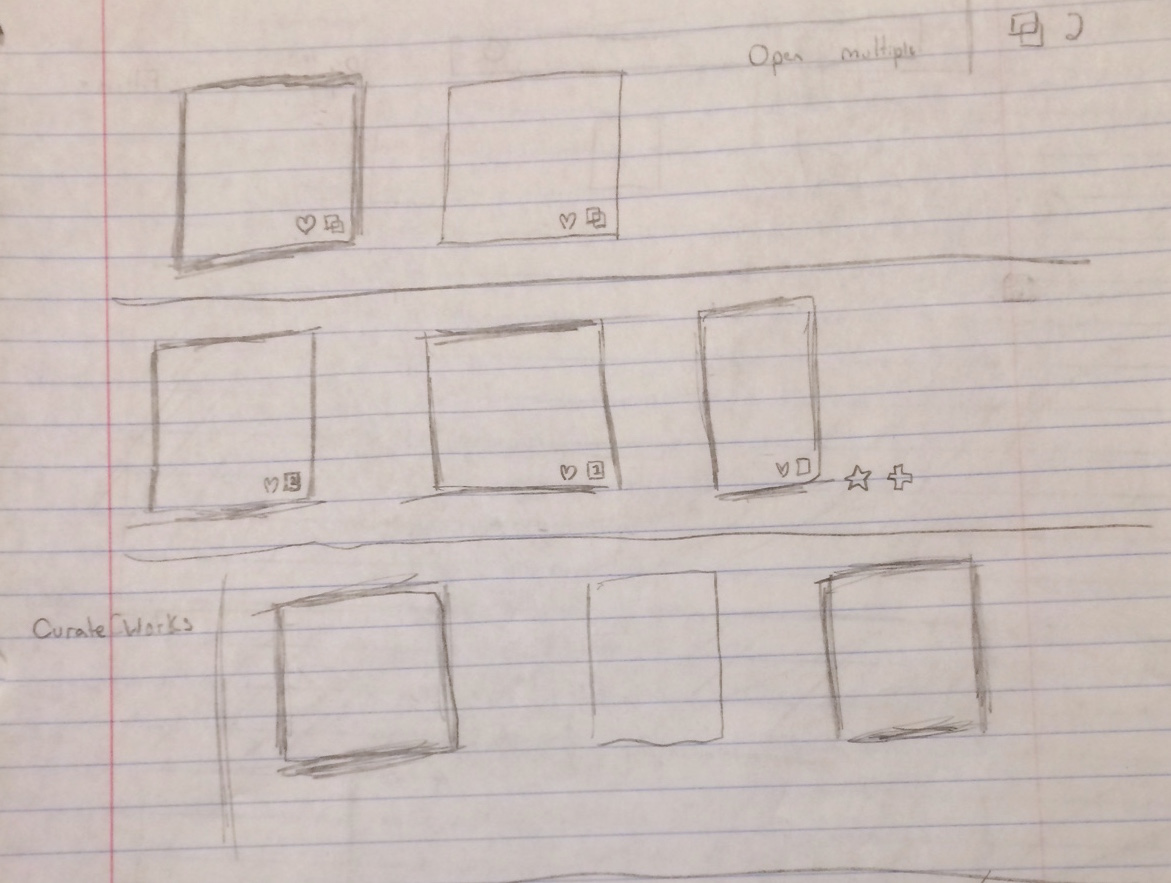 Open multiple
1
Curate Works